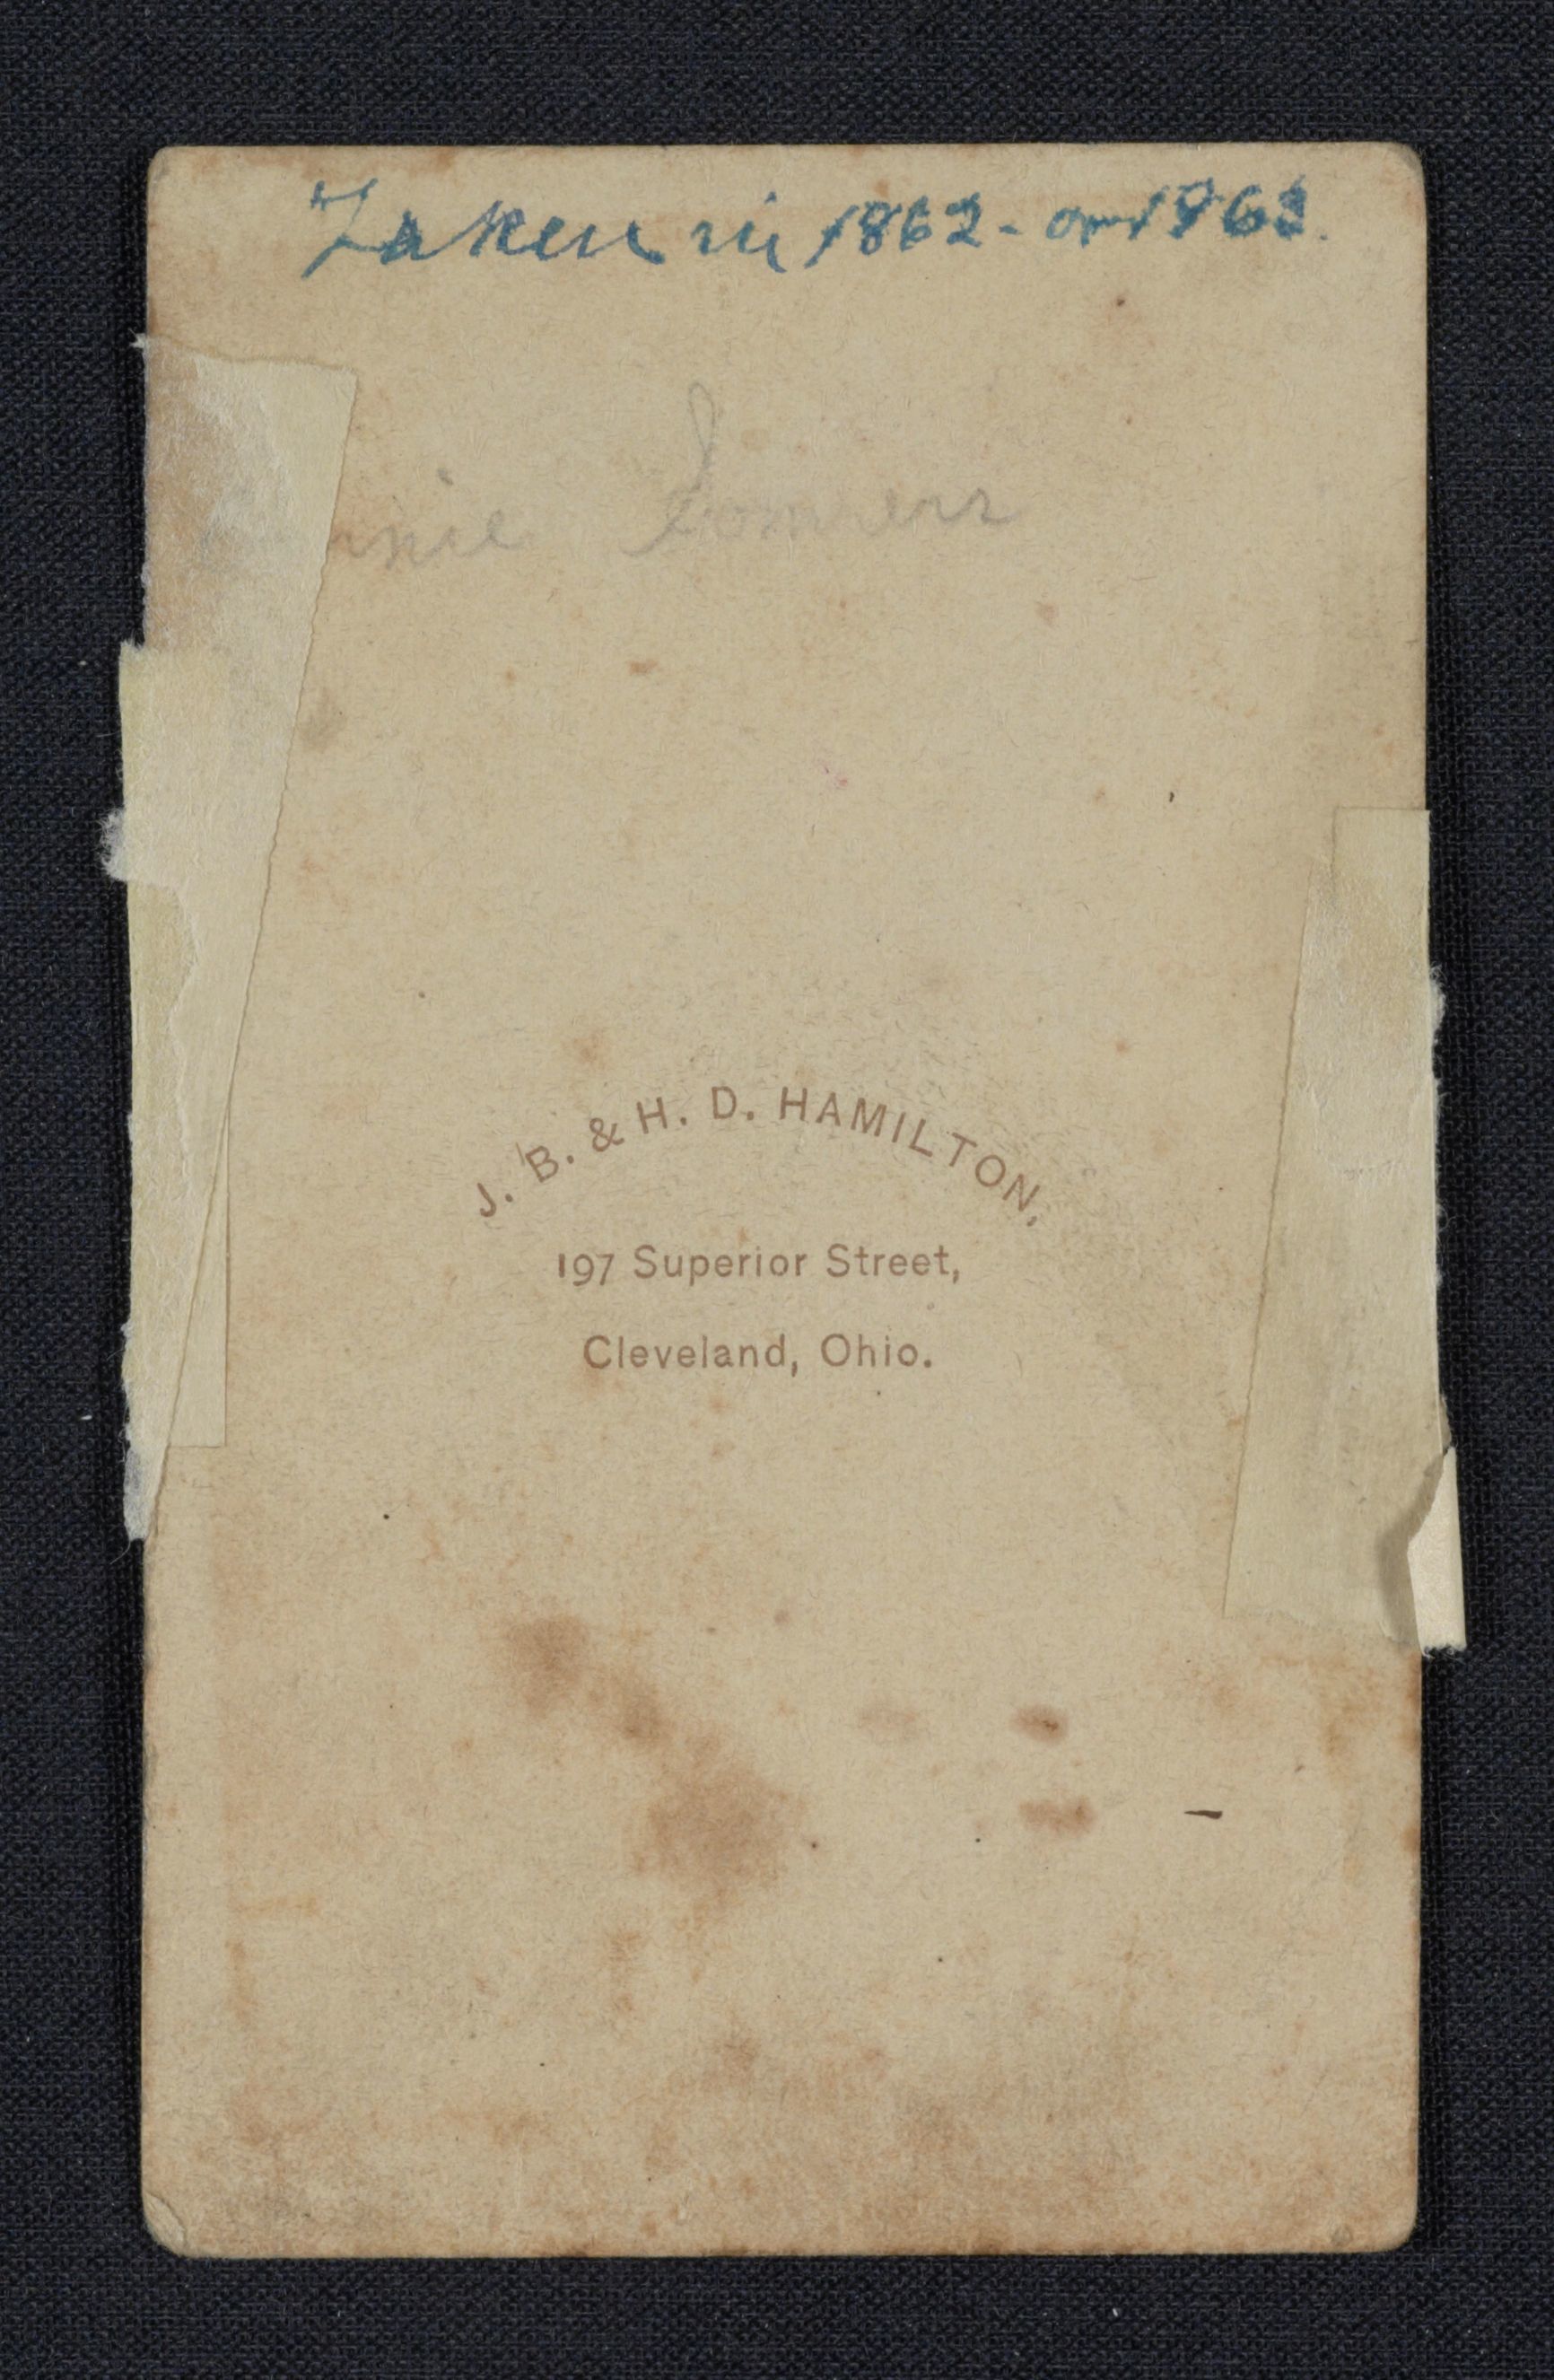 Taken in 1862 - or 1863.
J. B. & H. D. HAMILTON,
197 Superior Street,
Cleveland, Ohio.